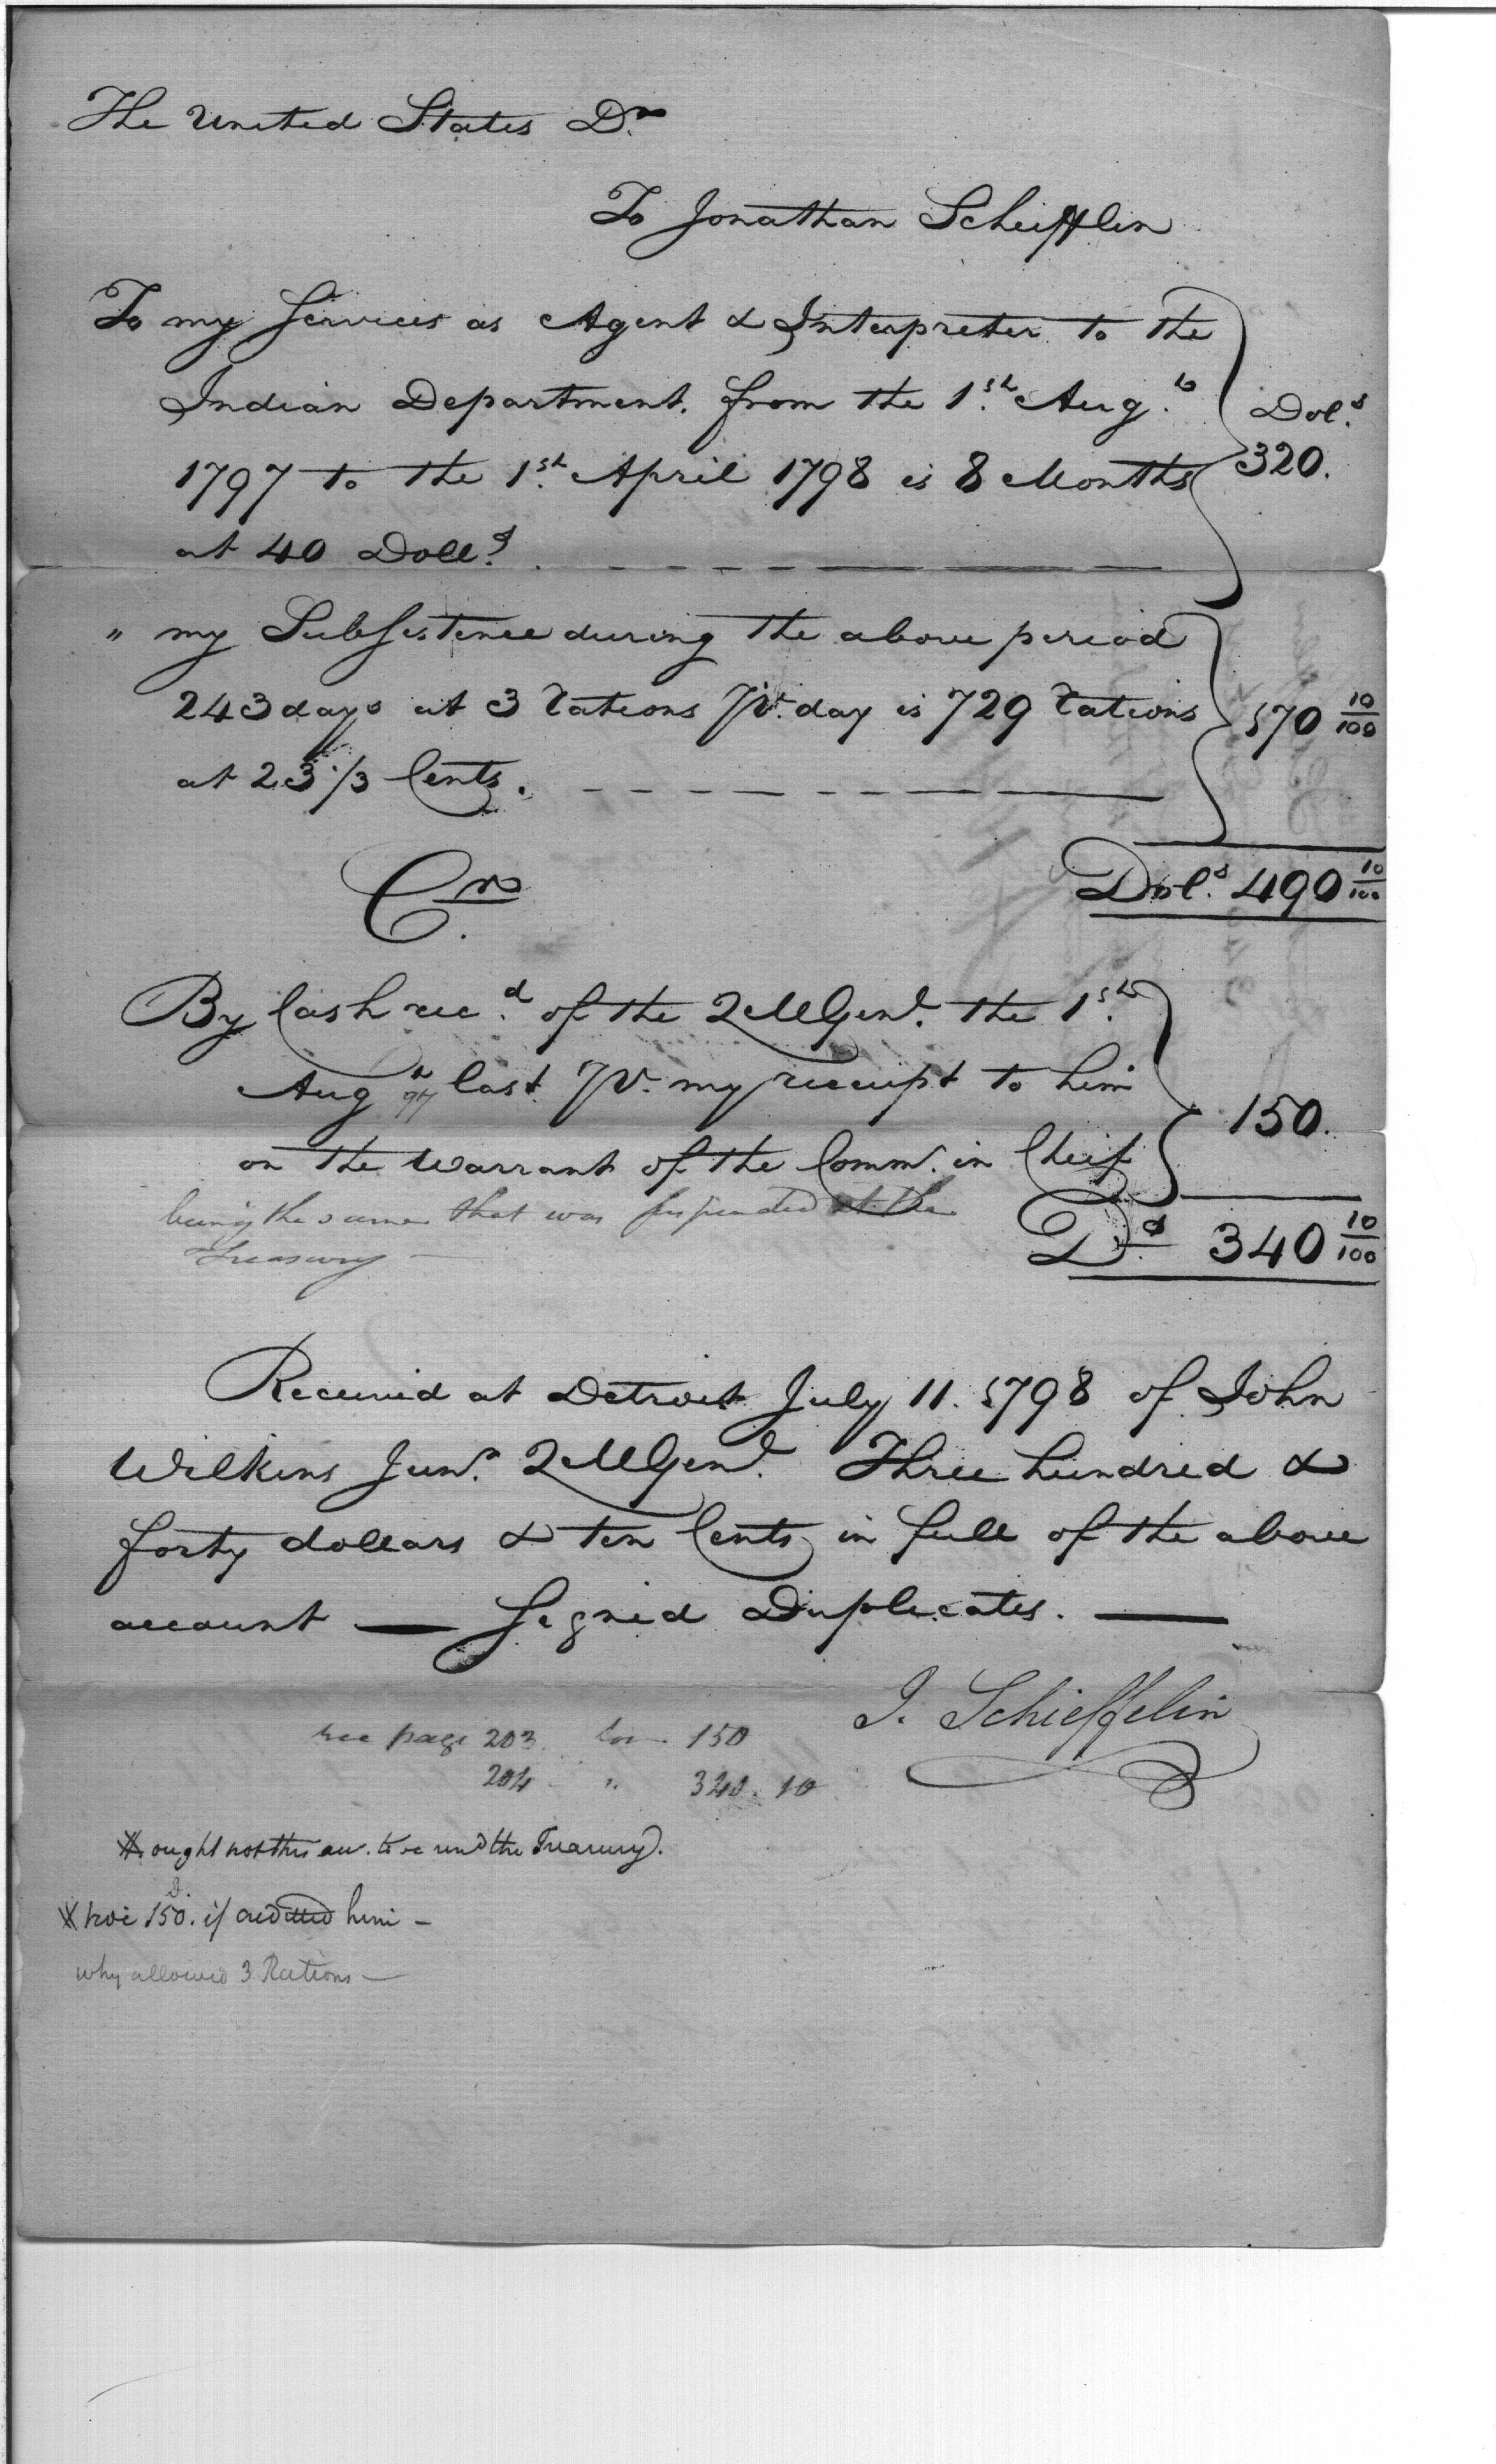 The United States Dr.
To Jonathan Scheifflin
To my Services as Agent & Interpreter to the
Indian Department. from the 1st. Aug.t
1797 to the 1st. April 1798 is 8 Months
at 40 Doll.s
Dol.s
320.
" my Subsistence during the above period
243 days at 3 rations Pr. day is 729 rations
at 23 1/3 Cents.
170 10/100
Cr.
Dol.s 490 10/100
By Cash rec.d of the QMGenl. the 1st.
Aug.t 97 last Pr. my receipt to him
on the Warrant of the Comm. in Cheif
150.
being the same that was suspended at the
Treasury
D.s 340 10/100
Received at Detroit July 11. 1798 of John
Wilkins Junr. QMGenl. Three hundred &
forty dollars & ten Cents in full of the above
account — Signed Duplicates. —
J. Schieffelin
see page 203 150
204 " 340. 10
ought not this to the Treasury.
150. if credited him —
why allowed 3 Rations —